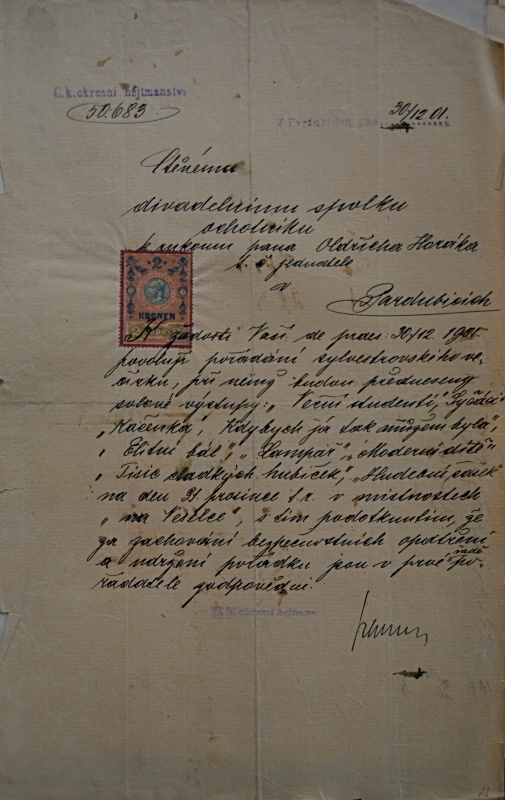 C.k. okresní hejtmanství
50.683
V Pardubicích, dne 30/12 01.
divadelnímu spolku
ochotníků
k rukoum pana Oldřicha Horáka
t. č. jednatele
v
Pardubicích
2
KRONEN
K žádosti Vaší de praes. 30/12 1901
povoluji pořádání sylvestrovského ve-
čírku, při němž budou předneseny
solové výstupy: „Věční studenti",
„Káčenka", „Kdybych já tak mužem byla",
„Elitní bál", „Lampář", „Moderní dítě"
„Tisíc sladkých hubiček", „Hudební
na den 31. prosince t.r. v místnostech
„na Veselce", s tím podotknutím, že
za zachování bezpečnostních opatření
a udržení pořádku jsou v prvé řadě po-
řadatelé zodpovědni.
C. k. okresní hejtman: